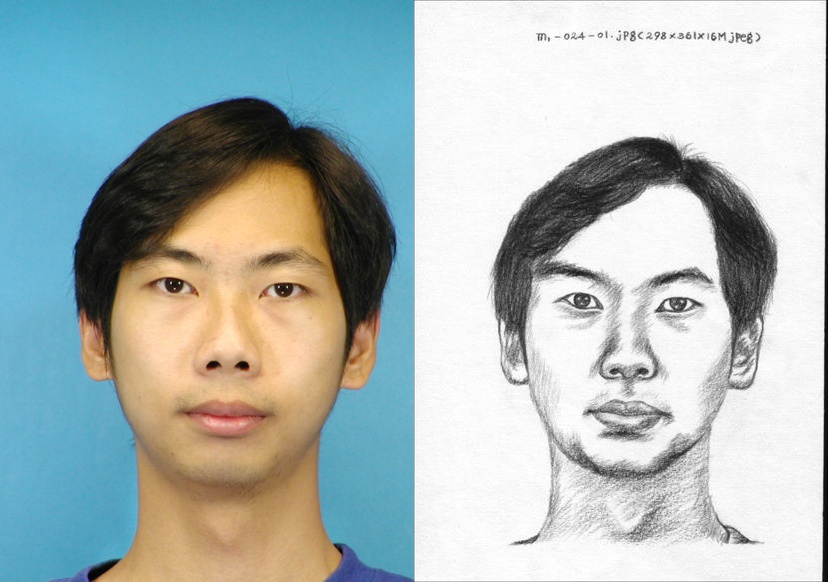 m1-024-01.jpg(298x361x16M jpeg)